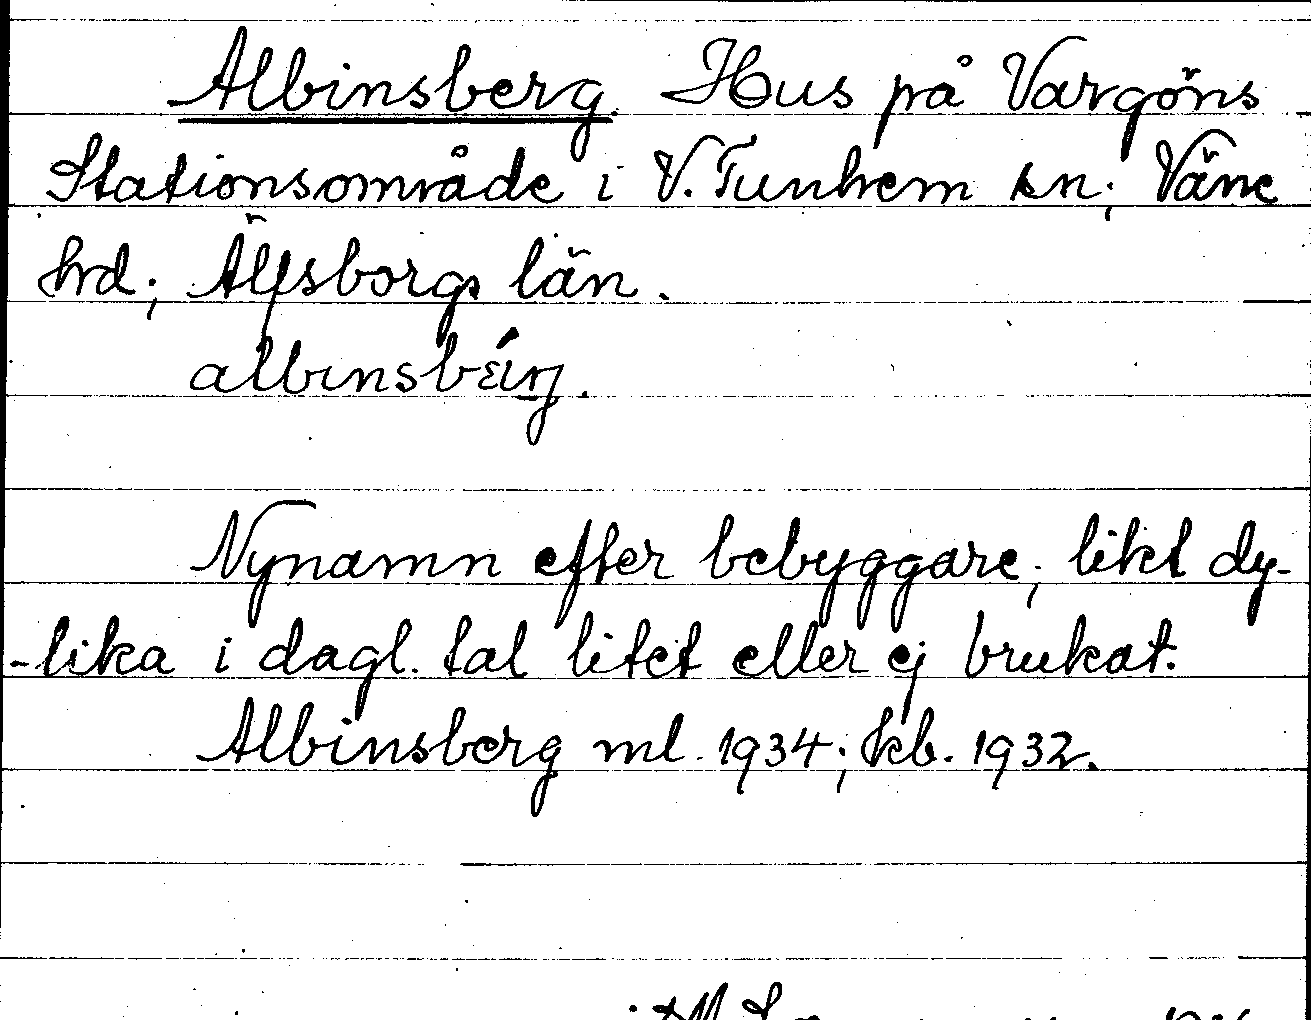 Albinsberg. Hus på Vargöns
Stationsområde i V. Tunhem sn; Väne
hrd; Älfsborgs län.
Nynamn efter bebyggare; likt dy-
-lika i dagl. tal litet eller ej brukat.
Albinsberg ml. 1934; kb. 1932.